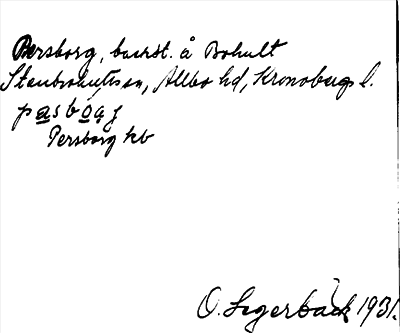 Persborg, backst. å Bohult
Stenbrohults sn, Allbo hd, Kronobergs l.
pasbog
Persborg kb
O. Segerbäck 1931.